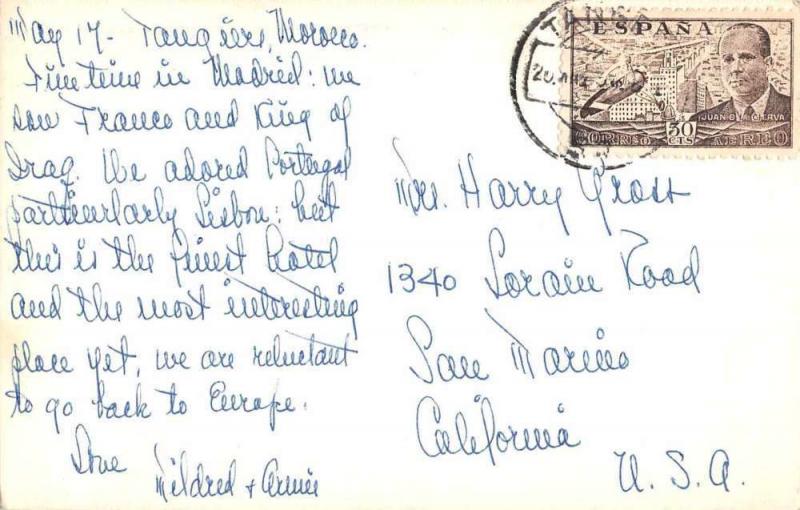 May 17 - Tangiers, Morocco.
Fine time in Madrid: we
saw Franco and King of
Iraq. We adored Portugal
particurlarly Lisbon: but
this is the finest hotel
and the most interesting
place yet, we are reluctant
to go back to Europe.
Love
Mildred + Armie
ESPAÑA
JUAN D LA CIERVA
30
CTS
CORREO AEREO
Mrs. Harry Grost
1340 Lorain Road
San Marino
California
U. S. A.